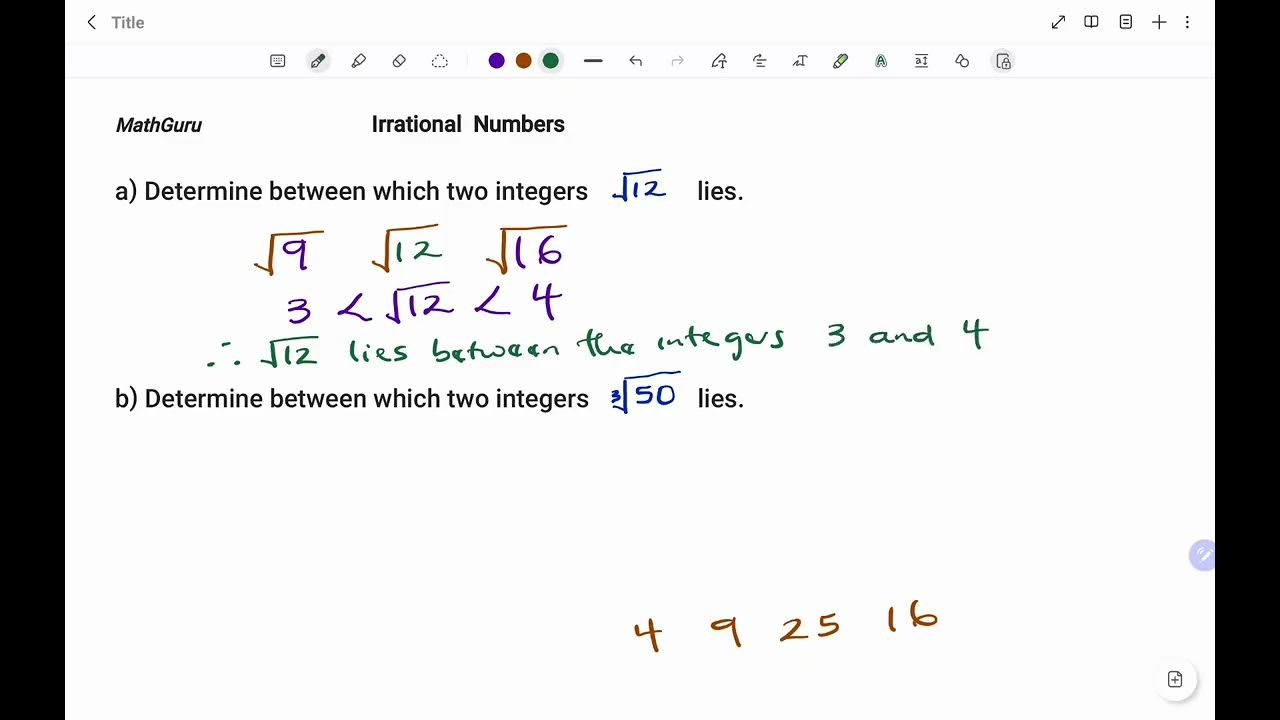 Title
MathGuru Irrational Numbers
a) Determine between which two integers √12 lies.
√9 √12 √16
3 < √12 < 4
∴ √12 lies between the integers 3 and 4
b) Determine between which two integers ∛50 lies.
4 9 25 16